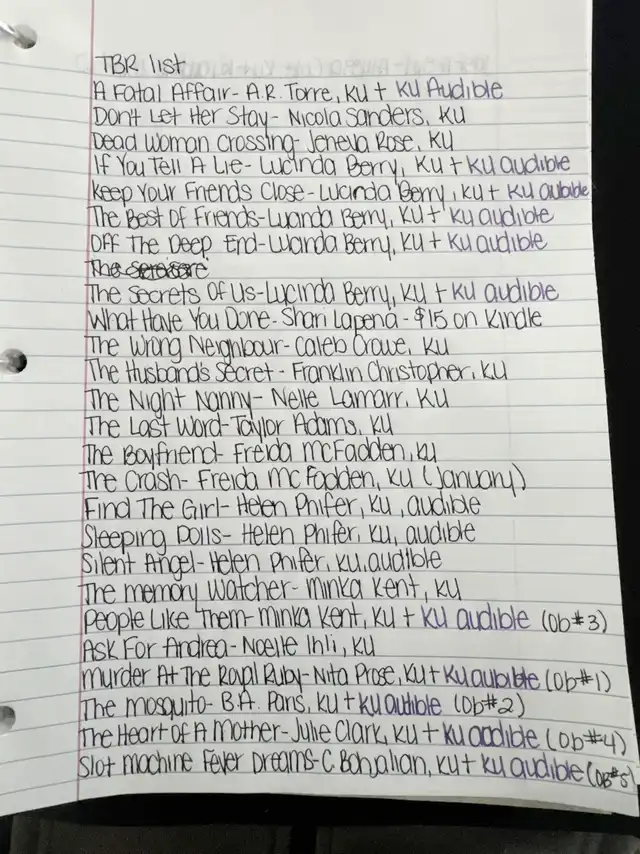 TBR list
A Fatal Affair- A.R. Torre, KU + KU Audible
Don't Let Her Stay- Nicola Sanders, KU
Dead Woman Crossing- Jeneva Rose, KU
If You Tell A Lie- Lucinda Berry, KU + KU audible
Keep Your Friends Close- Lucinda Berry, KU + KU audible
The Best Of Friends- Lucinda Berry, KU + KU audible
Off The Deep End- Lucinda Berry, KU + KU audible
The
The Secrets Of Us- Lucinda Berry, KU + KU audible
What Have You Done- Shari Lapena - $15 on Kindle
The Wrong Neighbour- Caleb Crowe, KU
The Husband's Secret - Franklin Christopher, KU
The Night Nanny- Nelle Lamarr, KU
The Last Word- Taylor Adams, KU
The Boyfriend- Freida McFadden, KU
The Crash- Freida McFadden, KU (January)
Find The Girl- Helen Phifer, KU, audible
Sleeping Dolls- Helen Phifer, KU, audible
Silent Angel- Helen Phifer, KU, audible
The Memory Watcher- Minka Kent, KU
People Like Them- Minka Kent, KU + KU audible (Ob#3)
Ask For Andrea- Noelle Ihli, KU
Murder At The Royal Ruby- Nita Prose, KU + KU aubible (Ob#1)
The Mosquito- B.A. Paris, KU + KU audible (Ob#2)
The Heart of A Mother- Julie Clark, KU + KU audible (Ob#4)
Slot Machine Fever Dreams- C Bohjalian, KU + KU audible (Ob#5)